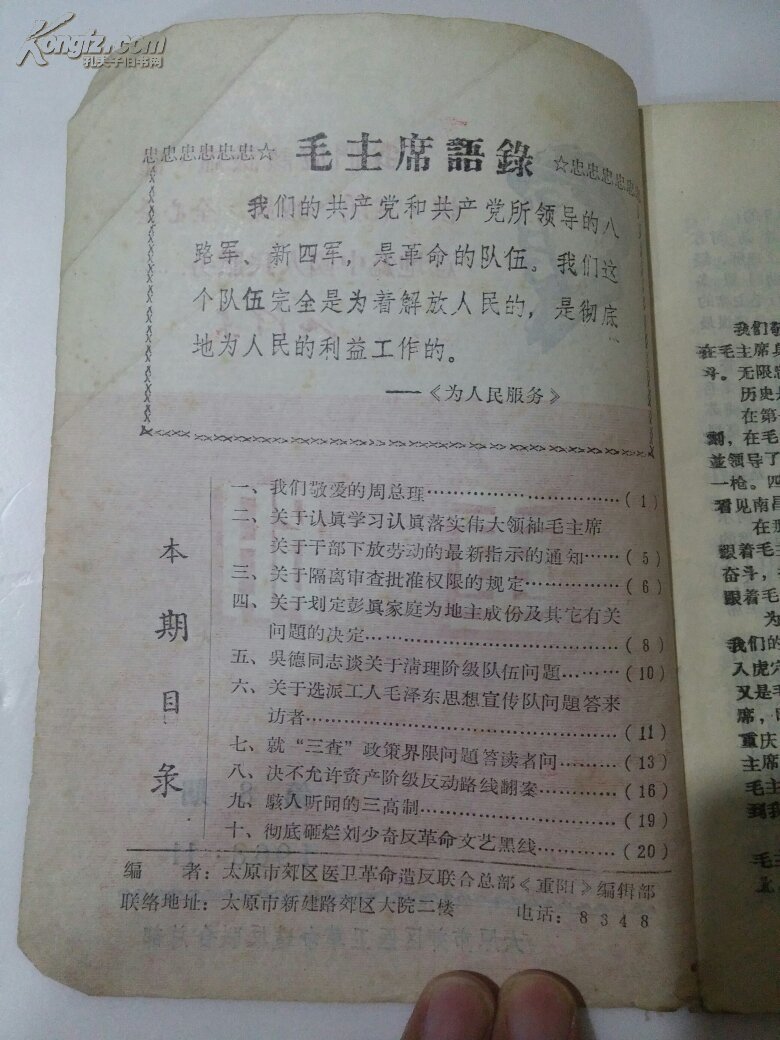 Kongfz.com
孔夫子旧书网
忠忠忠忠忠忠☆ 毛主席語錄 ☆忠忠忠忠忠
我们的共产党和共产党所领导的八
路军、新四军，是革命的队伍。我们这
个队伍完全是为着解放人民的，是彻底
地为人民的利益工作的。
——《为人民服务》
本期目录
一、我们敬爱的周总理……………………………(1)
二、关于认眞学习认眞落实伟大领袖毛主席
关于干部下放劳动的最新指示的通知……(5)
三、关于隔离审查批准权限的规定……………(6)
四、关于划定彭眞家庭为地主成份及其它有关
问題的决定……………………………………(8)
五、吳德同志谈关于淸理阶级队伍问題………(10)
六、关于选派工人毛泽东思想宣传队问題答来
访者……………………………………………(11)
七、就“三查”政策界限问題答读者问………(13)
八、决不允许资产阶级反动路线翻案…………(16)
九、駭人听闻的三高制…………………………(19)
十、彻底砸烂刘少奇反革命文艺黑线…………(20)
编　　者：太原市郊区医卫革命造反联合总部《重阳》编辑部
联络地址：太原市新建路郊区大院二楼　　电话：8348
我们敬
在毛主席身
斗。无限忠
历史是
在第一
割，在毛
並领导了
一枪。四
看见南昌
在
跟着毛主
奋斗，
跟着毛
为
我们的
入虎穴
又是毛
席，
重庆
主席
毛主
到我
毛
上